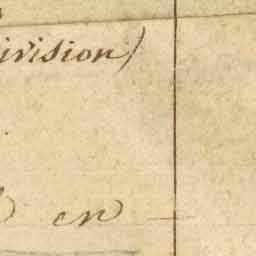 ivision)
en